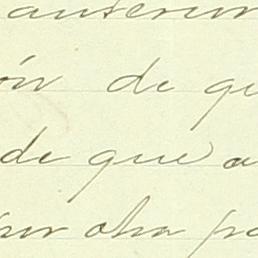 anterior
ón de qu
de que a
por otra pa